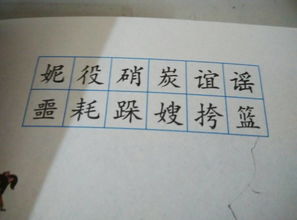 妮役硝炭谊谣
噩耗跺嫂挎篮